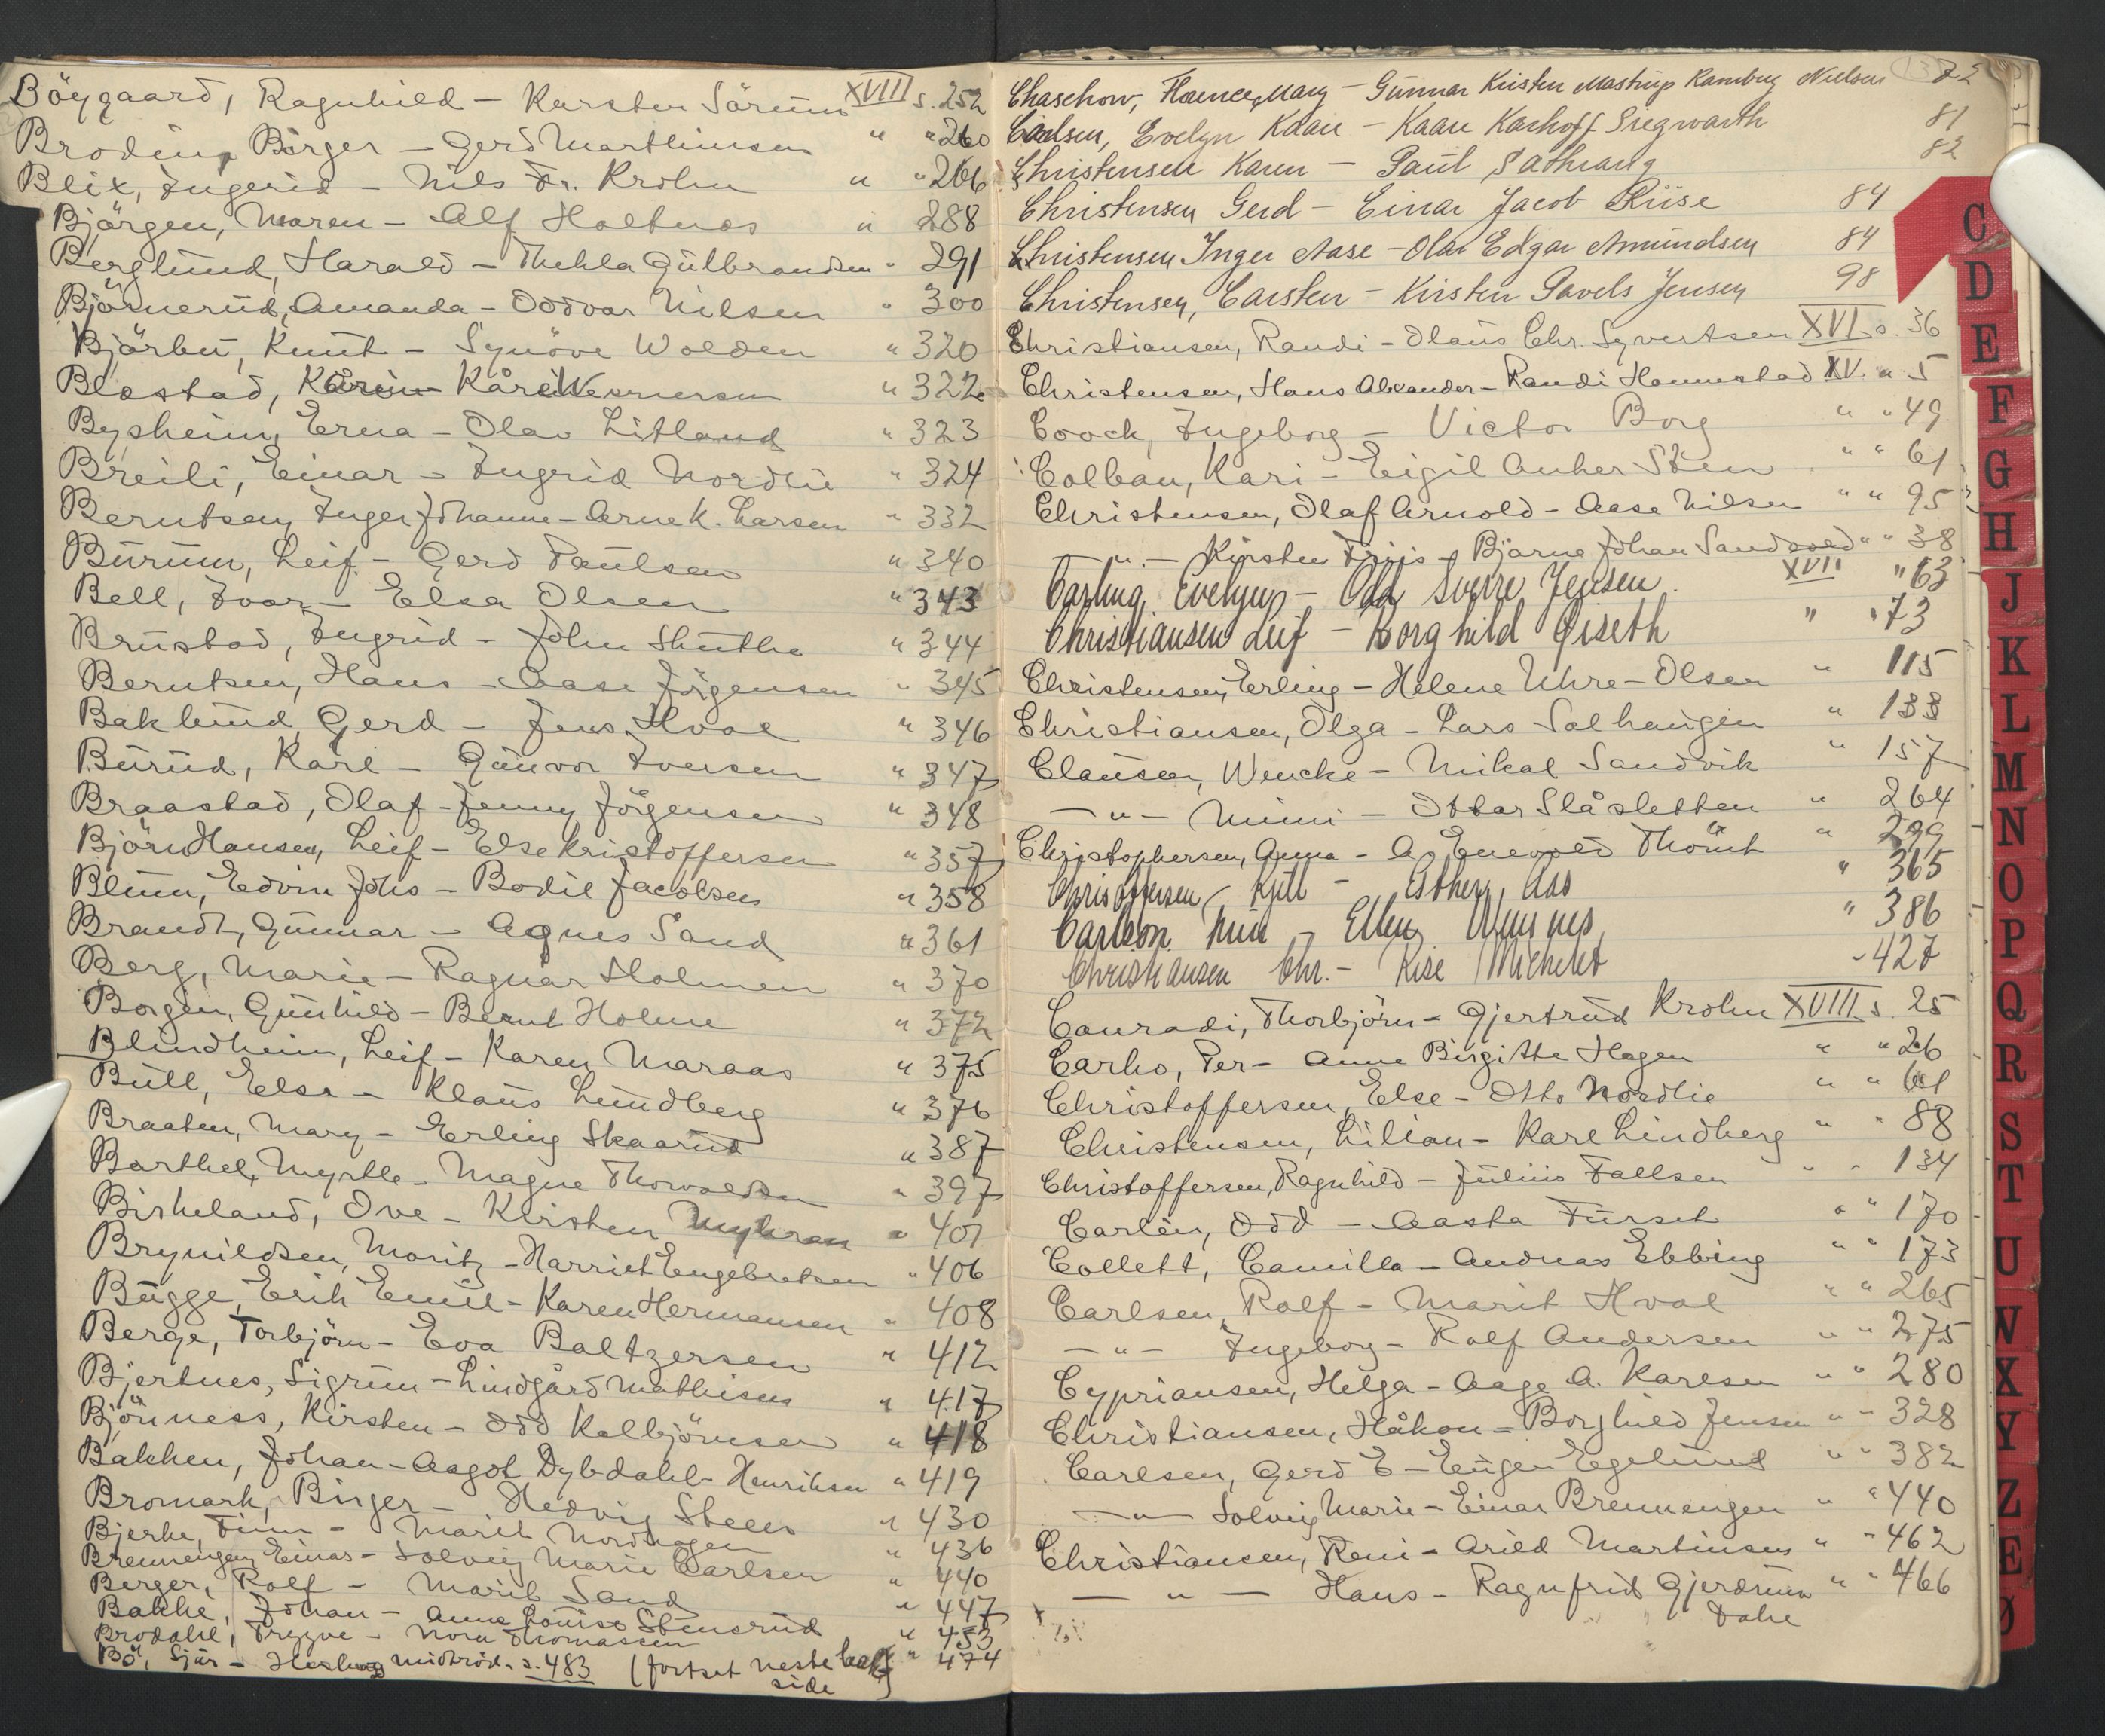 Böygaard, Ragnhild - Karsten Sörum XVIII s. 252
Broding Börger - Gerd Marthinsen " " 260
Blix, Ingerid - Nils Fr. Krohn " " 266
Bjørgen, Maren - Alf Holtnes " 288
Berglund, Harald - Thekla Gulbrandsen " 291
Björnerud, Amanda - Oddvar Nilsen " 300
Bjärbu, Knut - Synöve Wolden " 320
Blastad, Kåre " 322
Bysheim, Erna - Olav Litland " 323
Breili, Einar - Ingrid Nordlie " 324
Berntsen, Inger Johanne - Arne K. Larsen " 332
Burum, Leif - Gerd Paulsen " 340
Bell, Ivar - Elsa Olsen " 343
Brustad, Ingrid - John Skuthe " 344
Berntsen, Hans - Aase Jörgensen " 345
Baklund, Gerd - Jens Hval " 346
Burud, Karl - Gunvor Iversen " 347
Braastad, Olaf - Jenny Jörgensen " 348
Björn Hansen, Leif - Else Kristoffersen " 357
Blum, Edvin Johs - Bodil Jacobsen " 358
Brandt, Gunnar - Agnes Sand " 361
Berg, Marie - Ragnar Holmen " 370
Borgen, Gunhild - Bernt Holme " 372
Blindheim, Leif - Karen Maraas " 375
Bull, Elsa - Klaus Lundberg " 376
Braaten, Mary - Erling Skaarud " 387
Barthel, Myrtle - Magne Thorvaldsen " 397
Birkeland, Ove - Kirsten Myhran " 401
Brynildsen, Moritz - Harriet Engebretsen " 406
Bugge, Erik Emil - Karen Hermansen " 408
Berge, Torbjörn - Eva Baltzersen " 412
Bjertnes, Sigrun - Lindgård Mathisen " 417
Björnness, Kirsten - Odd Kolbjörnsen " 418
Bakken, Johan - Aagot Dybdahl-Henriksen " 419
Bromark, Birger - Hedvig Steen " 430
Bjerke, Finn - Marit Nordhagen " 436
Brennengen, Einar - Solveig Marie Carlsen " 440
Berger, Rolf - Marit Sand " 447
Bakke, Johan - Anna Louise Stensrud " 453
Brodahl, Trygve - Nora Thomassen " 474
Bö, - Midtröd. s. 483 (fortset neste side)
Chaschow, Florence, Mary - Gunnar Kristen Mastrup Ramberg Nielsen 72
Carlsen, Evelyn Kaare - Kaare Karhoff Siegwarth 81
Christensen Karen - Paul Sathrang 82
Christensen Gerd - Einar Jacob Riise 84
Christensen Inger Aase - Olav Edgar Amundsen 84
Christensen, Carsten - Kirsten Pavels Jensen 98
Christiansen, Randi - Olaus Chr. Syvertsen XVI s. 36
Christensen, Hans Alexander - Randi Hannestad XV. " 5
Coock, Ingeborg - Victor Borg " " 49
Colbau, Kari - Eigil Anker Sten " " 61
Christensen, Olaf Arnold - Aase Nilsen " " 95
- " - Kirsten Frijs - Bjarne Johan Sandvold " " 38
Carling, Evelyn - Odd Sverre Jensen. XVII " 63
Christiansen Leif - Borghild Qiseth " " 73
Christensen, Erling - Helene Uhre-Olsen " 115
Christiansen, Olga - Lars Solhaugen " 133
Clausen, Wencke - Mikal Sandvik " 157
- " - Mimi - Ottar Slåsletten " 264
Christophersen, Anna - A. Enevold Thömt " 299
Christoffersen, Kjell - Esther, Aas " 365
Carlson - Ellen " 386
Christiansen Chr. - Kise Michelet - 427
Conradi, Thorbjörn - Gjertrud Krohn XVIII s. 25
Carho, Per - Anne Birgitte Hagen " " 26
Christoffersen, Else - Otto Nordlie " " 61
Christensen, Lilian - Karl Lindberg " " 88
Christoffersen, Ragnhild - Julius Fallsen " " 134
Carlèn, Odd - Aasta Furset " " 170
Collett, Camilla - Andreas Ebbing " " 173
Carlsen, Rolf - Marit Hval " " 265
- " - Ingeborg - Rolf Andersen " " 275
Cypriansen, Helga - Aage A. Karlsen " " 280
Christiansen, Håkon - Borghild Jensen " " 328
Carlsen, Gerd E - Eugen Egelund " " 382
- " - Solveig Marie - Einar Brennengen " " 440
Christiansen, Reni - Arild Martinsen " " 462
- " - Hans - Ragnfrid Gjerdrum " " 466
Dahe
C
D
E
F
G
H
J
K
L
M
N
O
P
Q
R
S
T
U
W
X
Y
Z
Æ
Ø